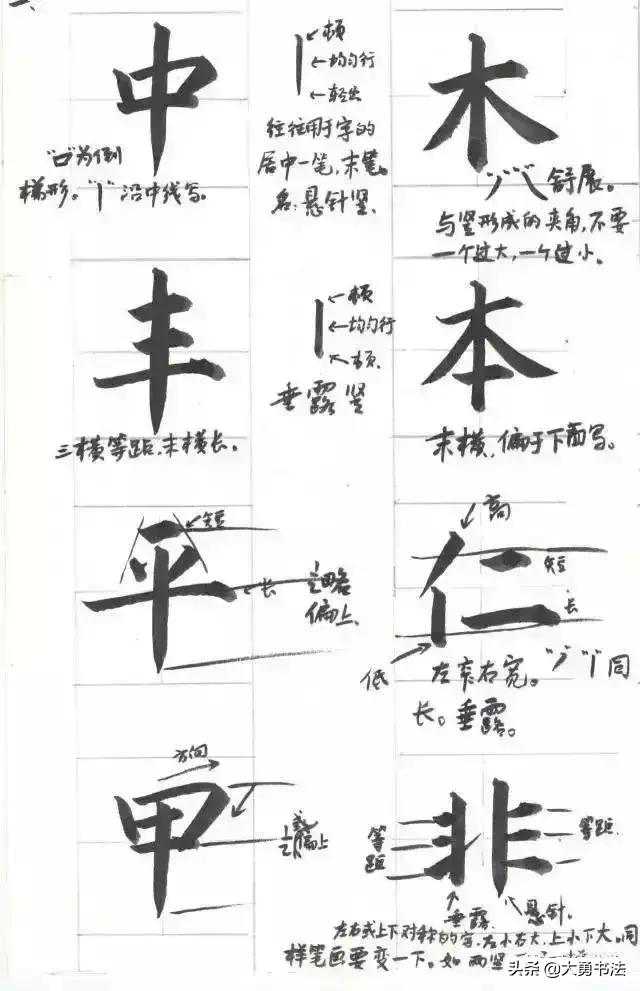 中
"口"为倒
梯形。"丨"沿中线写。
←顿
←均匀行
←轻出
往往用于字的
居中一笔,末笔。
名:悬针竖。
木
"丿""㇏"舒展。
与竖形成的夹角,不要
一个过大,一个过小。
丰
三横等距,末横长。
←顿
←均匀行
顿
垂露竖
本
末横,偏于下面写。
平
←短
←长
1/2略
偏上。
仁
高
短
长
低
左窄右宽。"丿""丨"同
长。垂露。
甲
方向
偏上
非
等
距
等距
垂露
悬针。
左右或上下对称的字,左小右大,上小下大。同
样笔画要变一下。如两竖
头条 @大勇书法